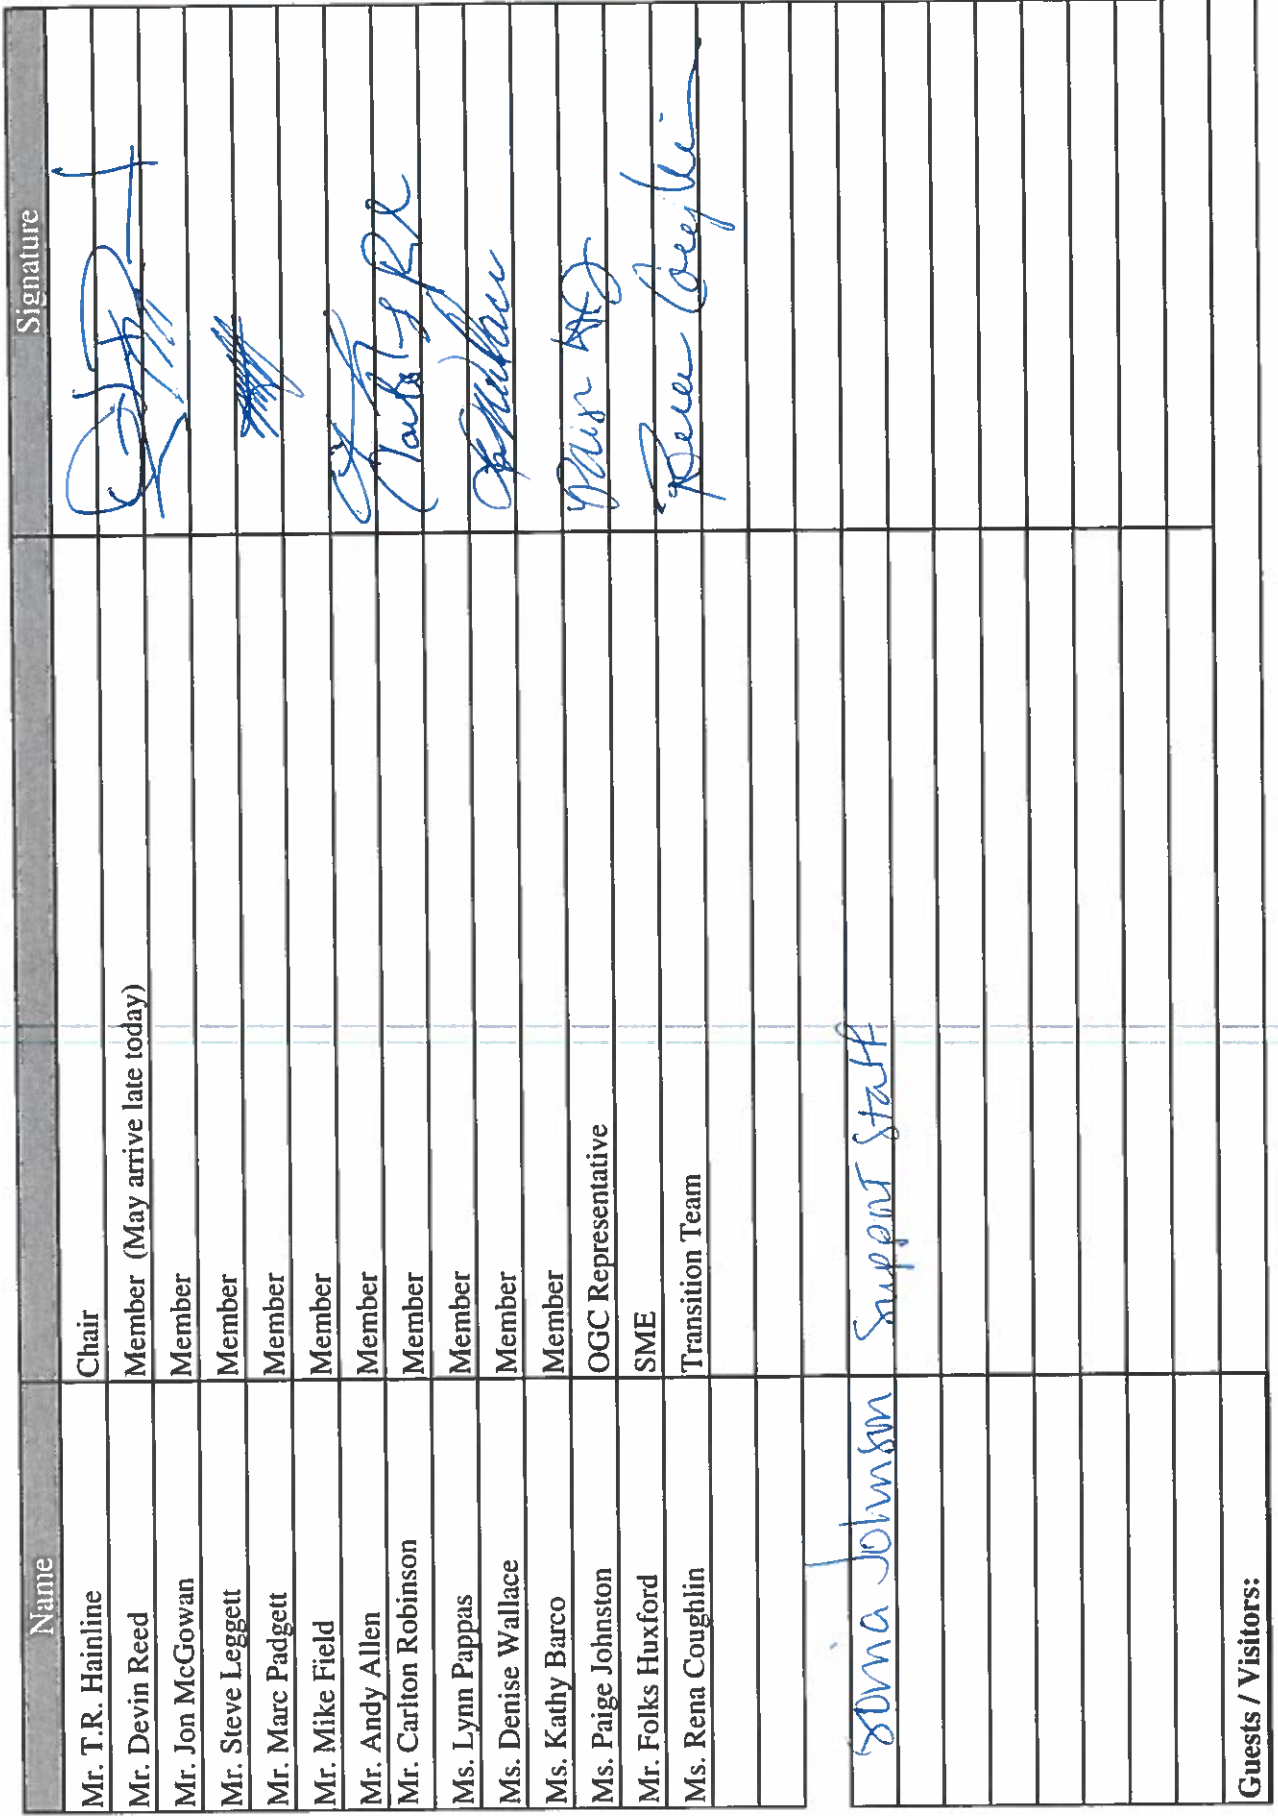 Name Signature
Mr. T.R. Hainline Chair
Mr. Devin Reed Member (May arrive late today)
Mr. Jon McGowan Member
Mr. Steve Leggett Member
Mr. Marc Padgett Member
Mr. Mike Field Member
Mr. Andy Allen Member
Mr. Carlton Robinson Member
Ms. Lynn Pappas Member
Ms. Denise Wallace Member
Ms. Kathy Barco Member
Ms. Paige Johnston OGC Representative
Mr. Folks Huxford SME
Ms. Rena Coughlin Transition Team Rena Coughlin
Johnson Support Staff
Guests / Visitors: